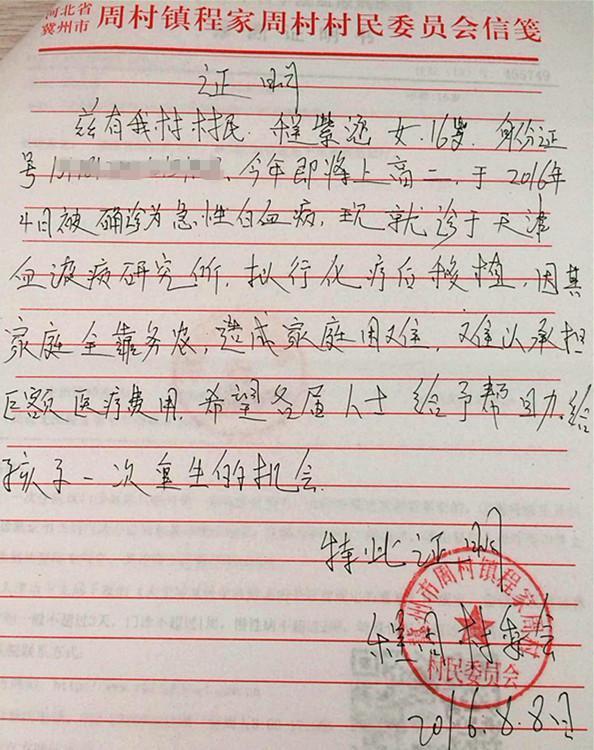 河北省
冀州市 周村镇程家周村村民委员会信笺
证明
兹有我村村民 程紫涵 女.16岁.身份证
号 今年即将上高二.于2016年
4日被确诊为急性白血病,现就诊于天津
血液病研究所.拟行化疗后移植,因其
家庭全靠务农,造成家庭困难,难以承担
巨额医疗费用.希望各届人士给予帮助.给
孩子一次重生的机会.
特此证明
程周村委会
冀州市周村镇程家周村
村民委员会
2016.8.8日